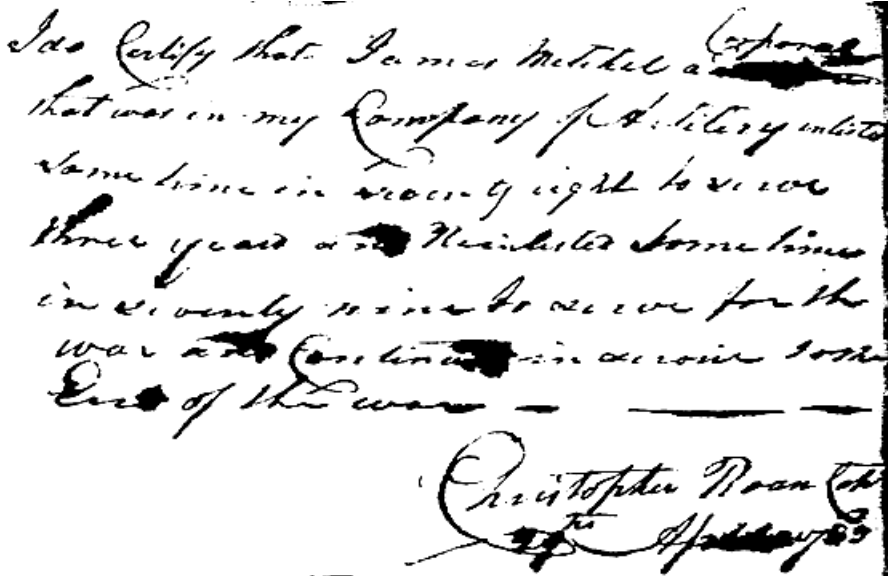 I do Certify that James Mitchel a Corporal
that was in my Company of Artilery inlisted
some time in seventy eight to serve
three years and Reinlisted some time
in seventy nine to serve for the
war and Continued in servise to the
End of the war
Christopher Roan Capt